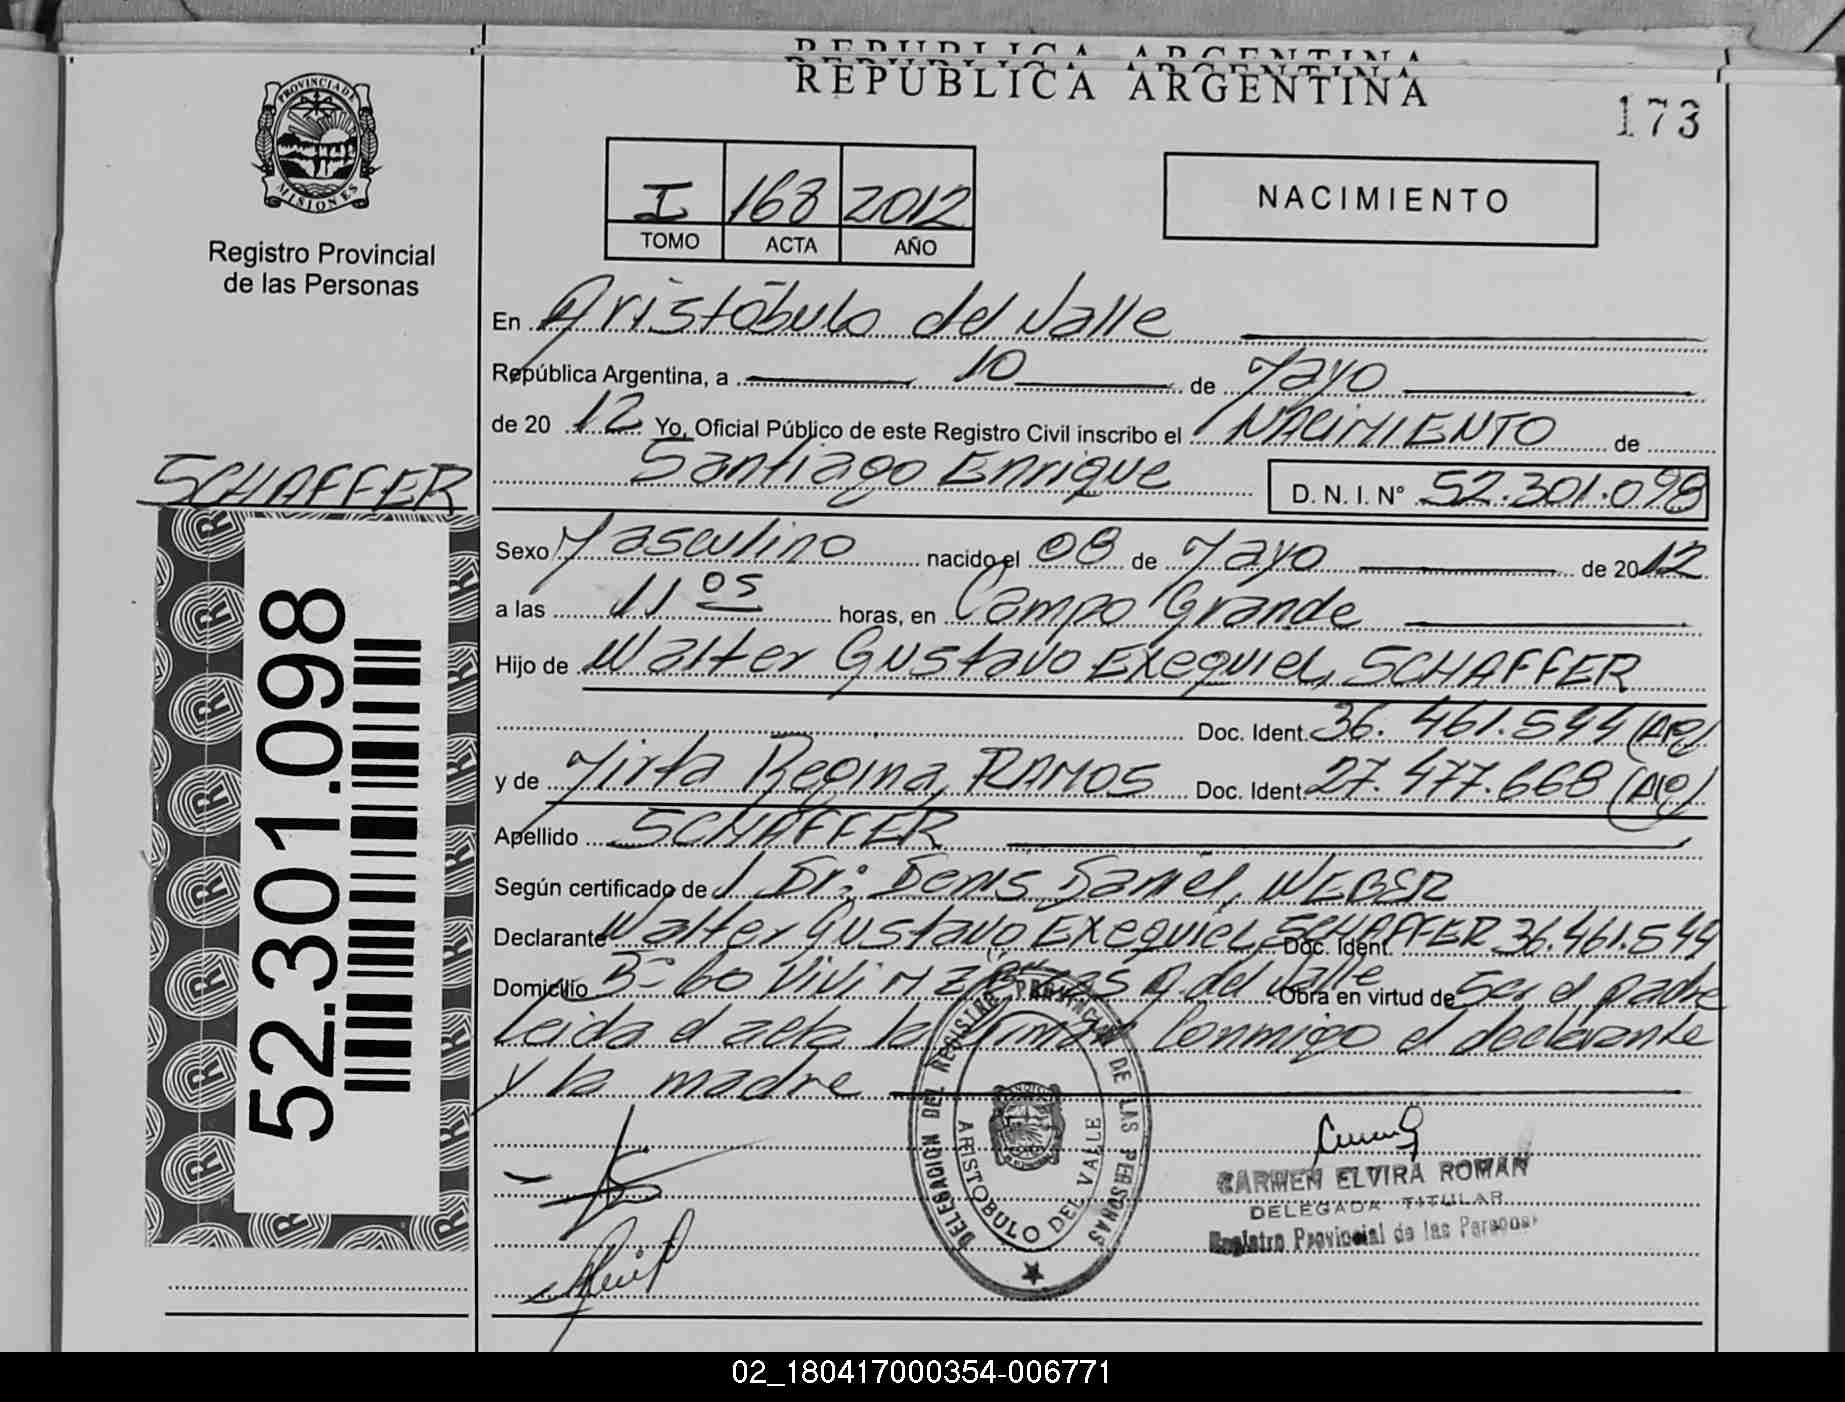 REPUBLICA ARGENTINA
REPUBLICA ARGENTINA
173
PROVINCIA DE
MISIONES
Registro Provincial
de las Personas
I 168 2012
TOMO ACTA AÑO
NACIMIENTO
En Aristóbulo del Valle
República Argentina, a 10 de Mayo
de 20 12 Yo, Oficial Público de este Registro Civil inscribo el NACIMIENTO de
Santiago Enrique D. N. I. Nº 52.301.098
SCHAFFER
52.301.098
Sexo Masculino nacido el 08 de Mayo de 2012
a las 11 05 horas, en Campo Grande
Hijo de Walter Gustavo Exequiel, SCHAFFER
Doc. Ident. 36.461.544 (AR)
y de Mirta Regina, RAMOS Doc. Ident. 27.477.668 (AR)
Apellido SCHAFFER
Según certificado de Dr: Denis Daniel, WEBER
Declarante Walter Gustavo Exequiel SCHAFFER Doc. Ident. 36.461.544
Domicilio Bº 60 Vivi M A. del Valle Obra en virtud de Ser el padre
Leida el acta la firman Conmigo el declarante
y la madre
DELEGACION DEL REGISTRO PROVINCIAL DE LAS PERSONAS
ARISTOBULO DEL VALLE
CARMEN ELVIRA ROMAN
DELEGADA TITULAR
Registro Provincial de las Personas
02_180417000354-006771